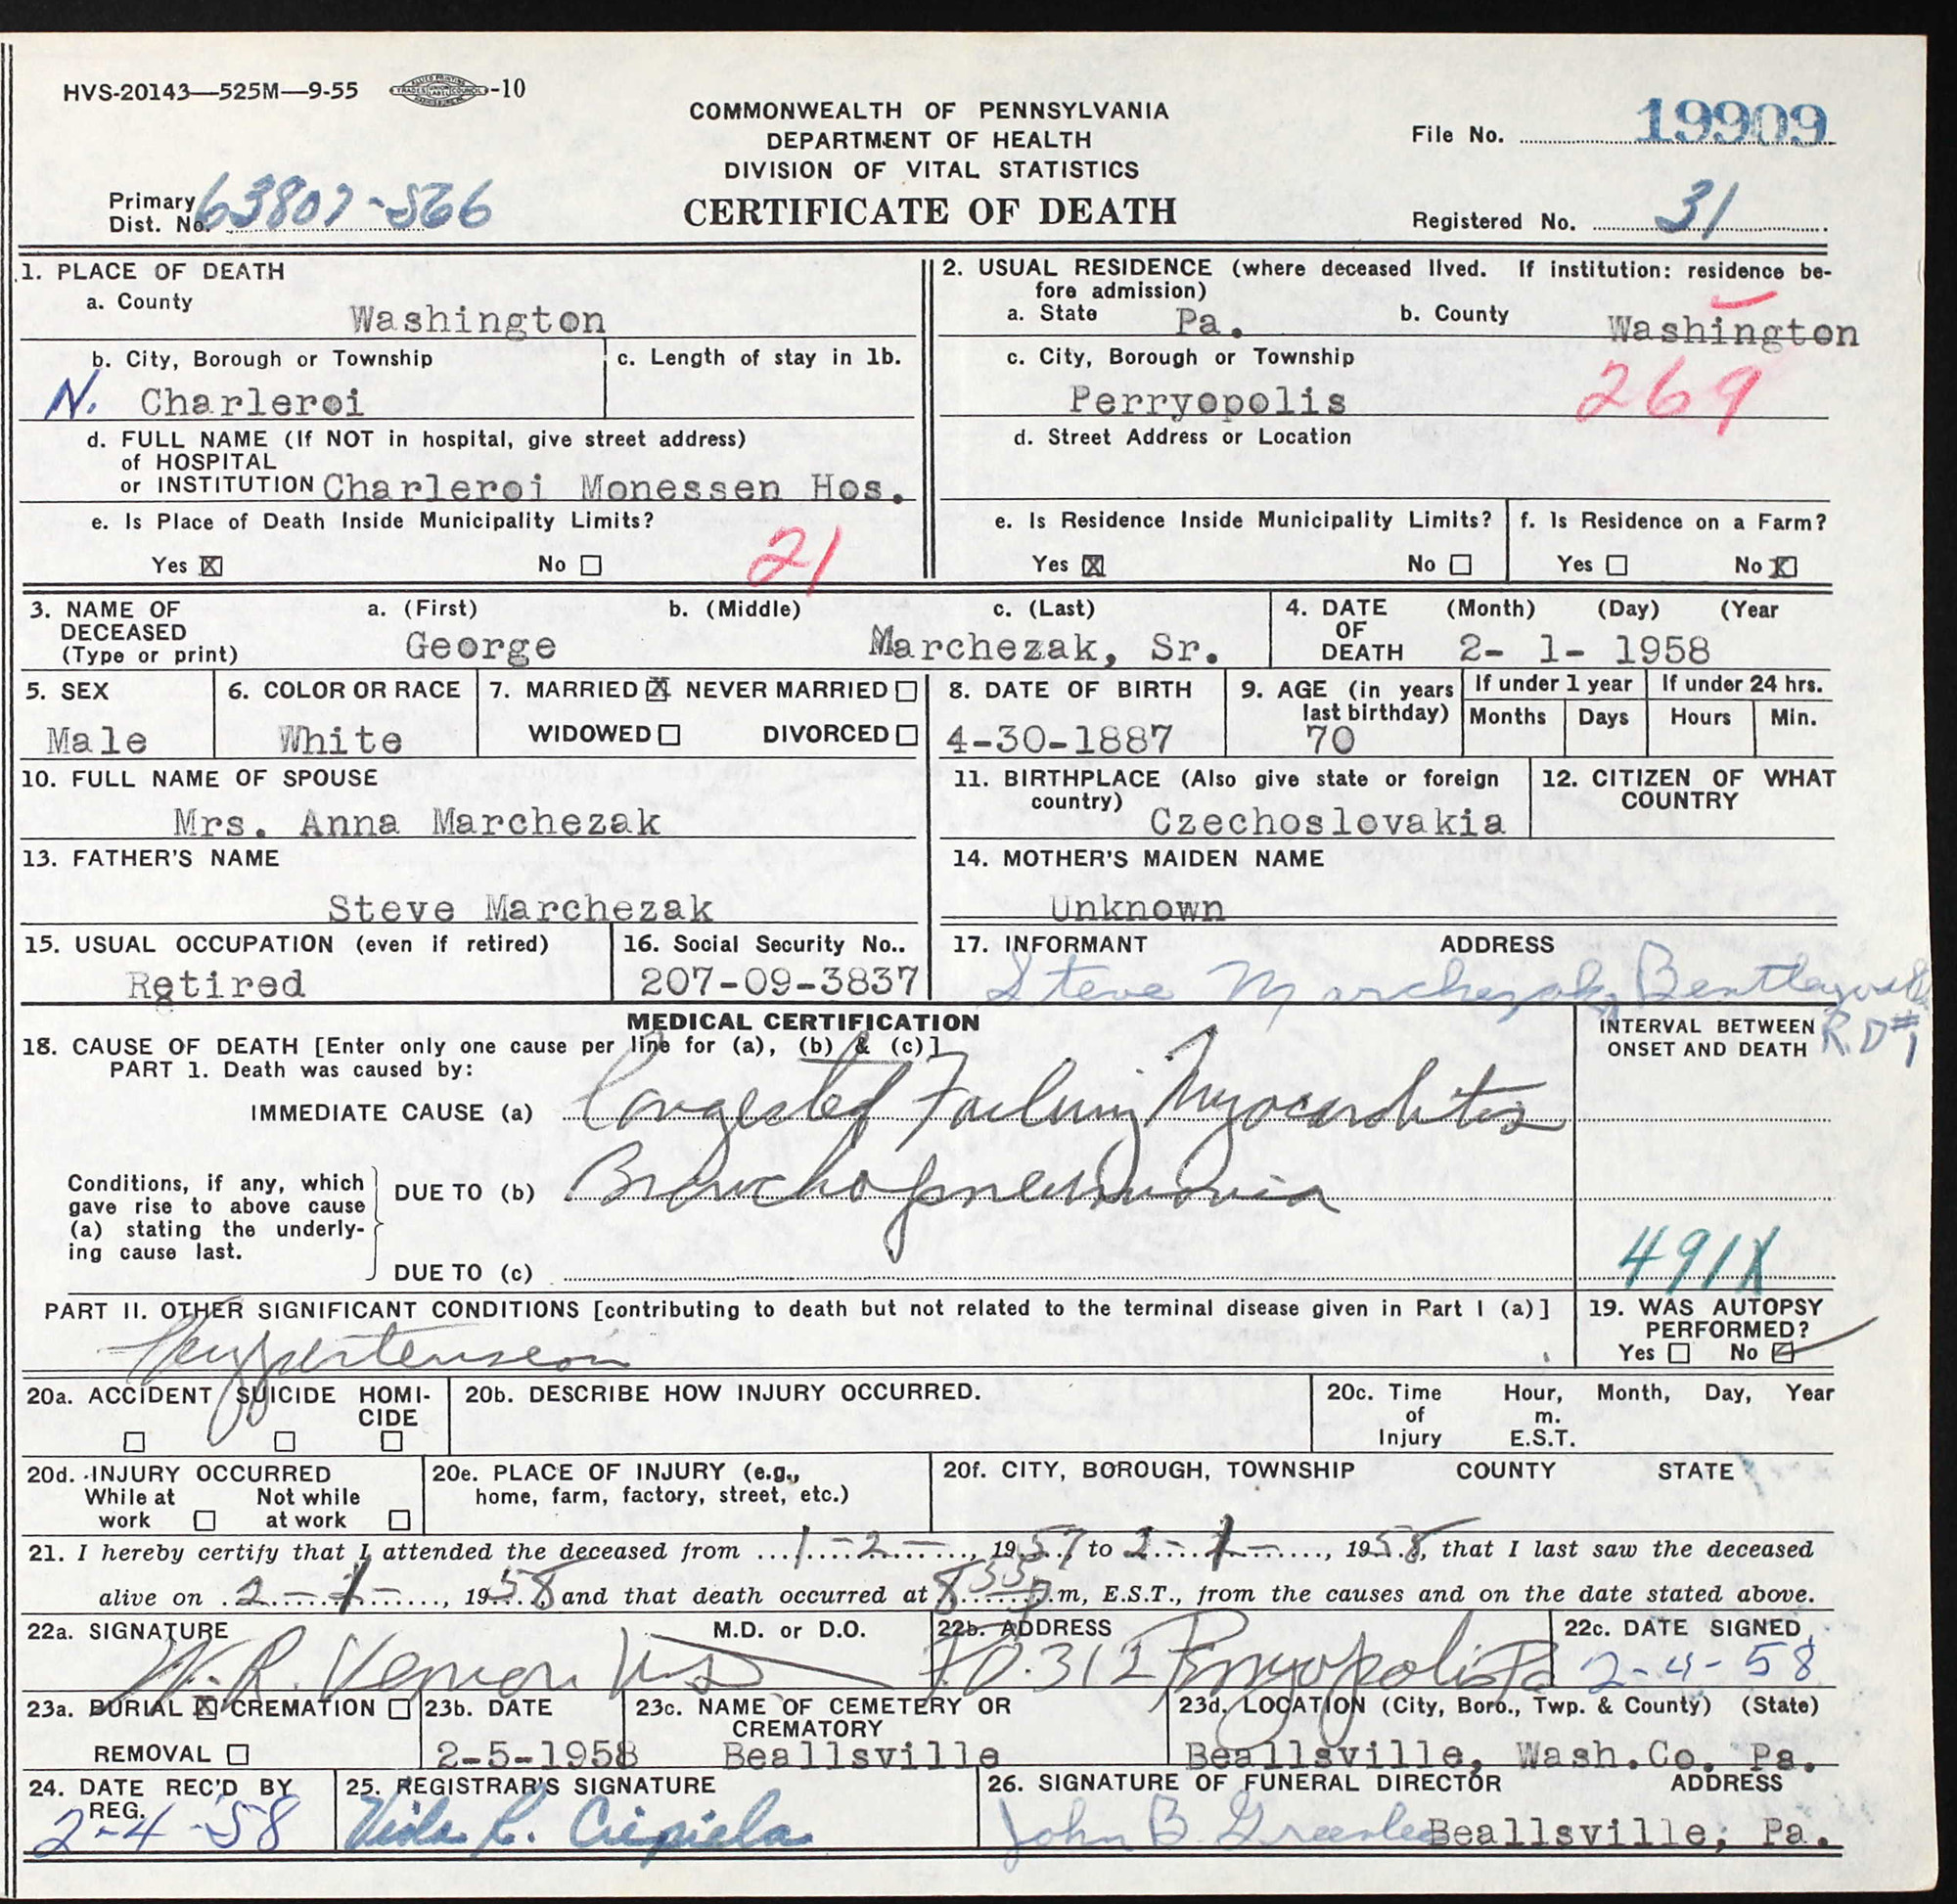 HVS-20143—525M—9-55 -10
COMMONWEALTH OF PENNSYLVANIA
DEPARTMENT OF HEALTH
DIVISION OF VITAL STATISTICS
CERTIFICATE OF DEATH
File No. 19909
Primary
Dist. No. 63807-566
Registered No. 31
1. PLACE OF DEATH
a. County
Washington
b. City, Borough or Township
N. Charleroi
c. Length of stay in 1b.
d. FULL NAME (If NOT in hospital, give street address)
of HOSPITAL
or INSTITUTION Charleroi Monessen Hos.
e. Is Place of Death Inside Municipality Limits?
Yes X No
21
2. USUAL RESIDENCE (where deceased lived. If institution: residence be-
fore admission)
a. State Pa. b. County Washington
c. City, Borough or Township
Perryopolis 269
d. Street Address or Location
e. Is Residence Inside Municipality Limits?
Yes X No
f. Is Residence on a Farm?
Yes No X
3. NAME OF
DECEASED
(Type or print)
a. (First) b. (Middle) c. (Last)
George Marchezak, Sr.
4. DATE
OF
DEATH
(Month) (Day) (Year
2- 1- 1958
5. SEX
Male
6. COLOR OR RACE
White
7. MARRIED X NEVER MARRIED
WIDOWED DIVORCED
8. DATE OF BIRTH
4-30-1887
9. AGE (in years
last birthday)
70
If under 1 year
Months Days
If under 24 hrs.
Hours Min.
10. FULL NAME OF SPOUSE
Mrs. Anna Marchezak
11. BIRTHPLACE (Also give state or foreign
country)
Czechoslovakia
12. CITIZEN OF WHAT
COUNTRY
13. FATHER'S NAME
Steve Marchezak
14. MOTHER'S MAIDEN NAME
Unknown
15. USUAL OCCUPATION (even if retired)
Retired
16. Social Security No..
207-09-3837
17. INFORMANT ADDRESS
Steve Marchezak,
R.D #1
MEDICAL CERTIFICATION
18. CAUSE OF DEATH [Enter only one cause per line for (a), (b) & (c)]
PART 1. Death was caused by:
IMMEDIATE CAUSE (a) Congested Failing Myocarditis
Conditions, if any, which
gave rise to above cause
(a) stating the underly-
ing cause last.
DUE TO (b) Bronchopneumonia
DUE TO (c)
INTERVAL BETWEEN
ONSET AND DEATH
491X
PART II. OTHER SIGNIFICANT CONDITIONS [contributing to death but not related to the terminal disease given in Part I (a)]
Hypertension
19. WAS AUTOPSY
PERFORMED?
Yes No
20a. ACCIDENT SUICIDE HOMI-
CIDE
20b. DESCRIBE HOW INJURY OCCURRED.
20c. Time
of
Injury
Hour, Month, Day, Year
m.
E.S.T.
20d. INJURY OCCURRED
While at
work
Not while
at work
20e. PLACE OF INJURY (e.g.,
home, farm, factory, street, etc.)
20f. CITY, BOROUGH, TOWNSHIP COUNTY STATE
21. I hereby certify that I attended the deceased from 1-2-, 1957, to 2-1-, 1958, that I last saw the deceased
alive on 2-1-, 1958 and that death occurred at 8:35 p.m, E.S.T., from the causes and on the date stated above.
22a. SIGNATURE M.D. or D.O.
W. R. Vernon MD
22b. ADDRESS
312 Perryopolis Pa
22c. DATE SIGNED
2-4-58
23a. BURIAL X CREMATION
REMOVAL
23b. DATE
2-5-1958
23c. NAME OF CEMETERY OR
CREMATORY
Beallsville
23d. LOCATION (City, Boro., Twp. & County) (State)
Beallsville, Wash.Co. Pa.
24. DATE REC'D BY
REG.
2-4-58
25. REGISTRAR'S SIGNATURE
Viola L.
26. SIGNATURE OF FUNERAL DIRECTOR ADDRESS
John B Greenlee Beallsville, Pa.